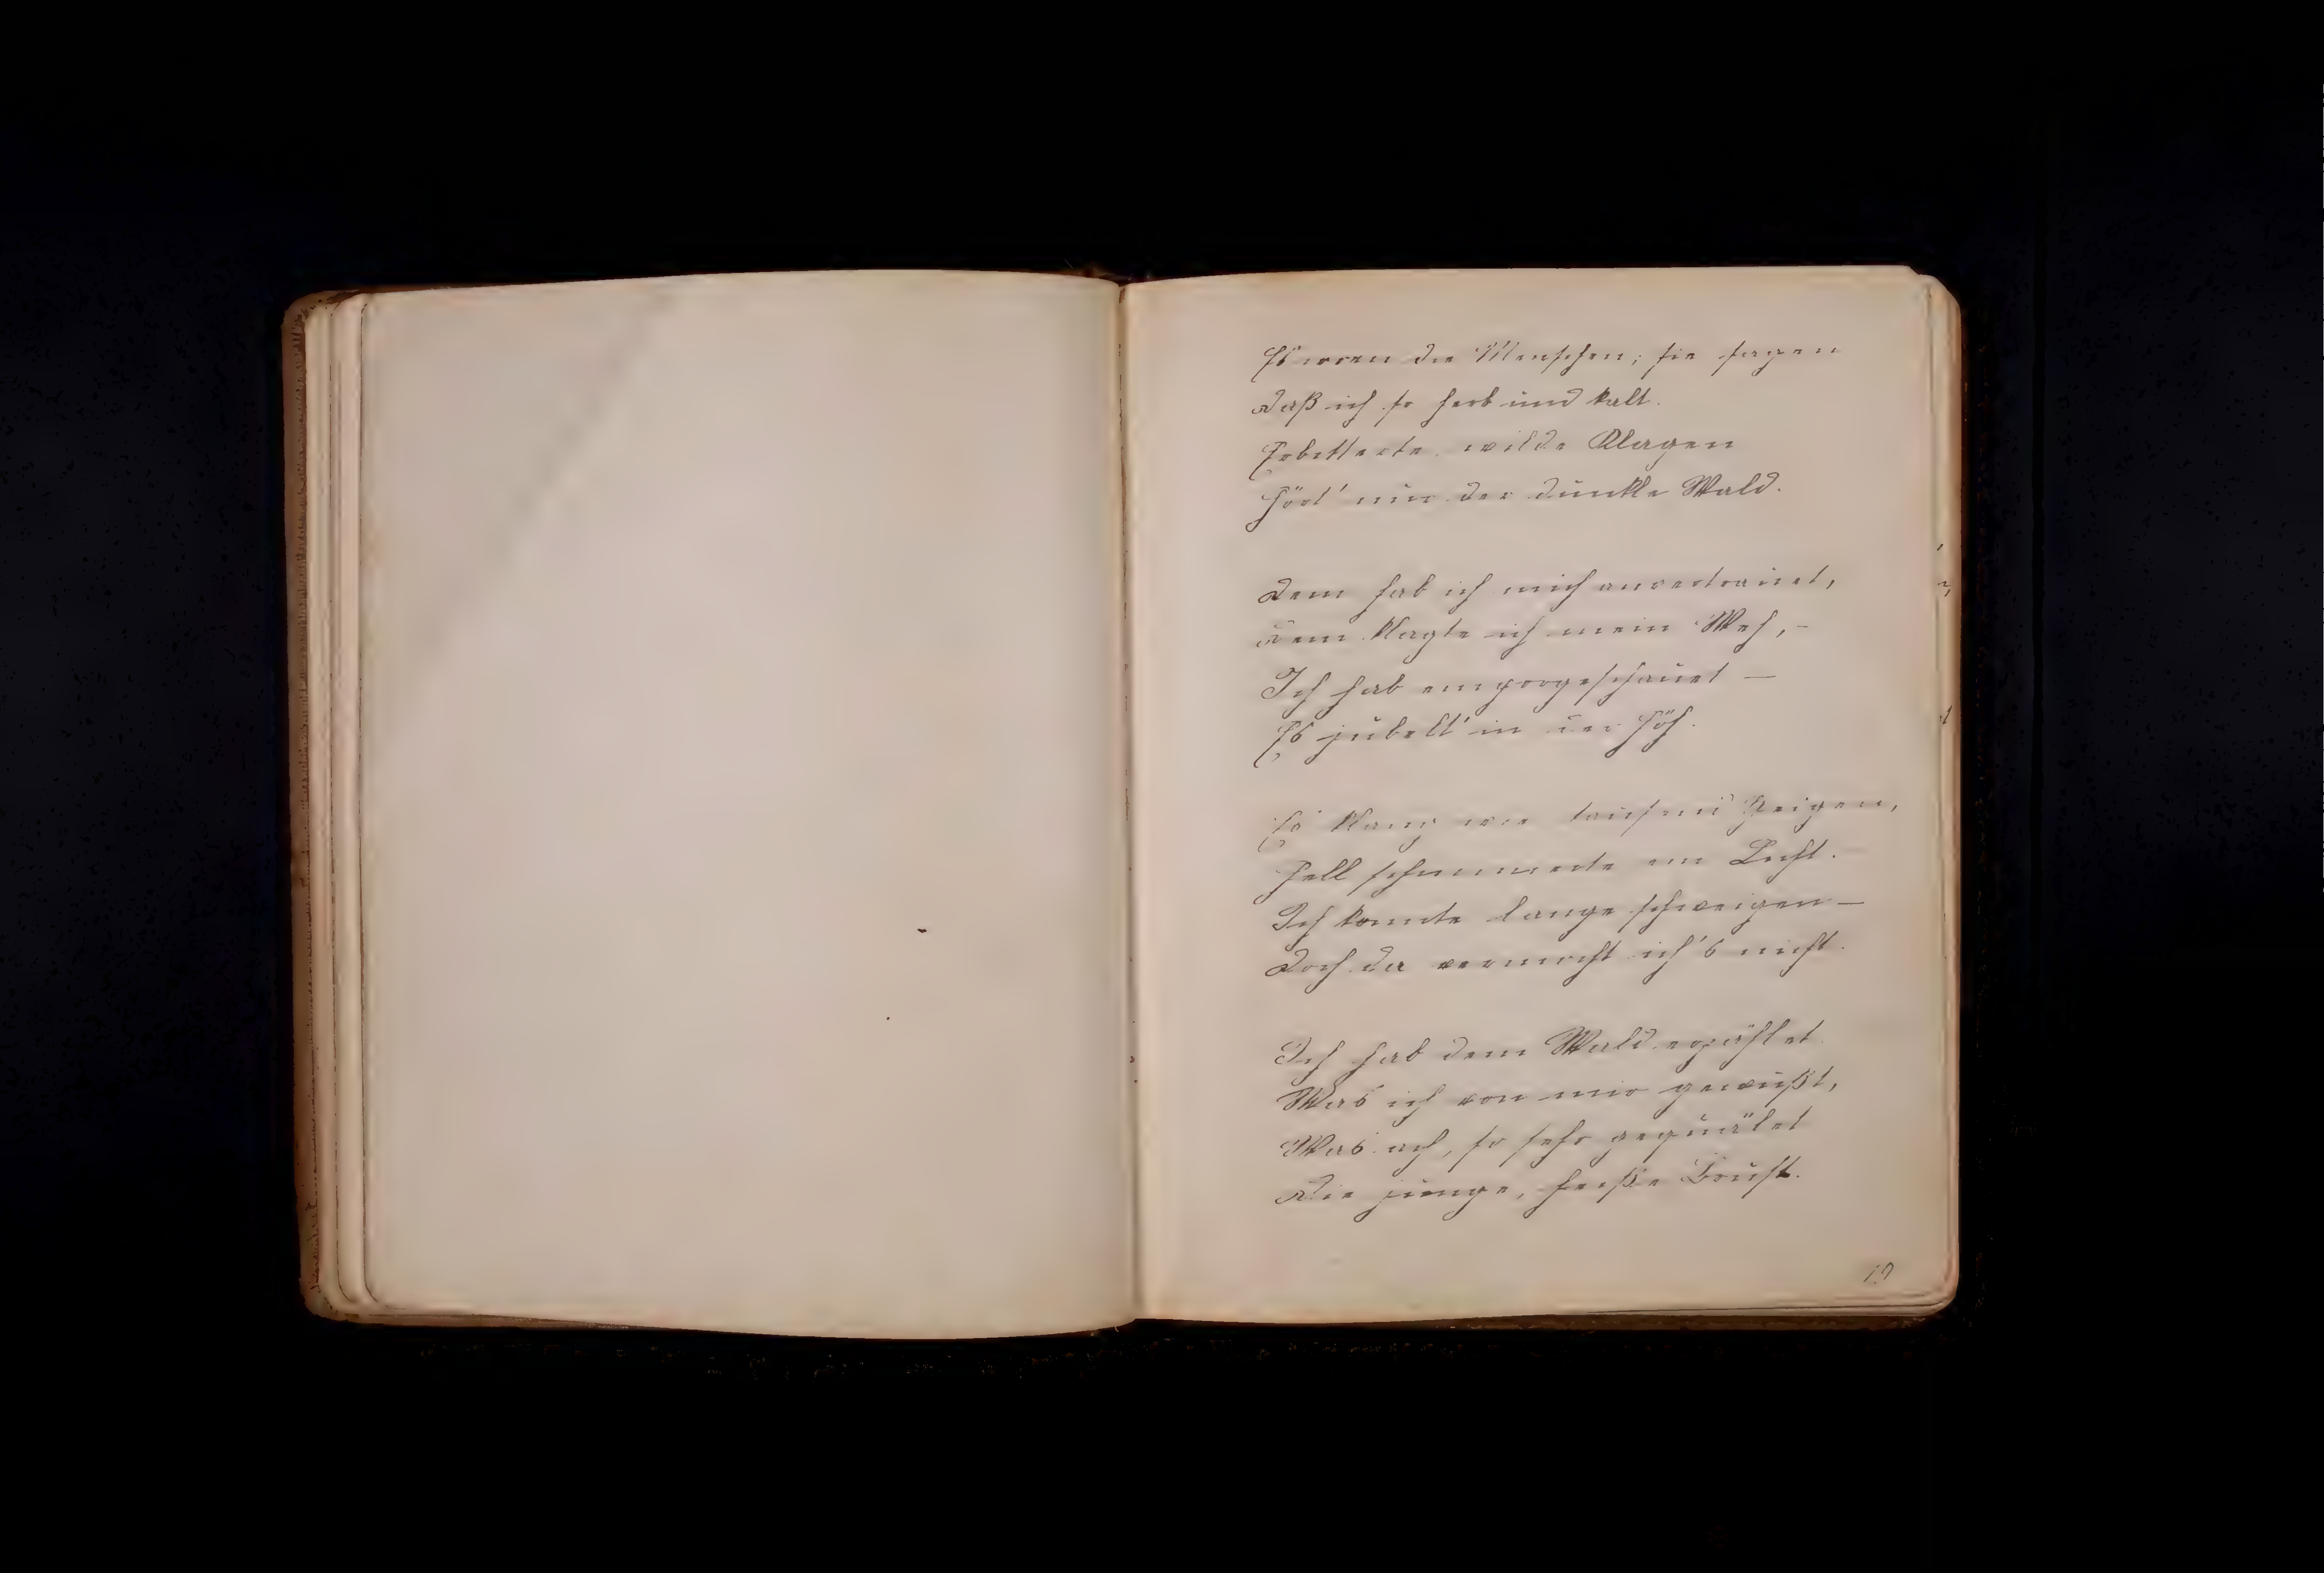 Es irren die Menschen; sie sagen
Daß ich so herb und kalt.
Erbitterte, wilde Klagen
Hört' nur der dunkle Wald.
Dem hab ich mich anvertrauet,
Dem klagte ich mein Weh, –
Ich hab emporgeschauet –
Es jubelt' in der Höh.
Es klang wie tausend Geigen,
Hell schimmerte ein Licht.
Ich konnte lange schweigen –
Doch da vermocht ich's nicht.
Ich hab dem Wald erzählet
Was ich von mir gewußt,
Was ach, so sehr gequälet
Die junge, heiße Brust.